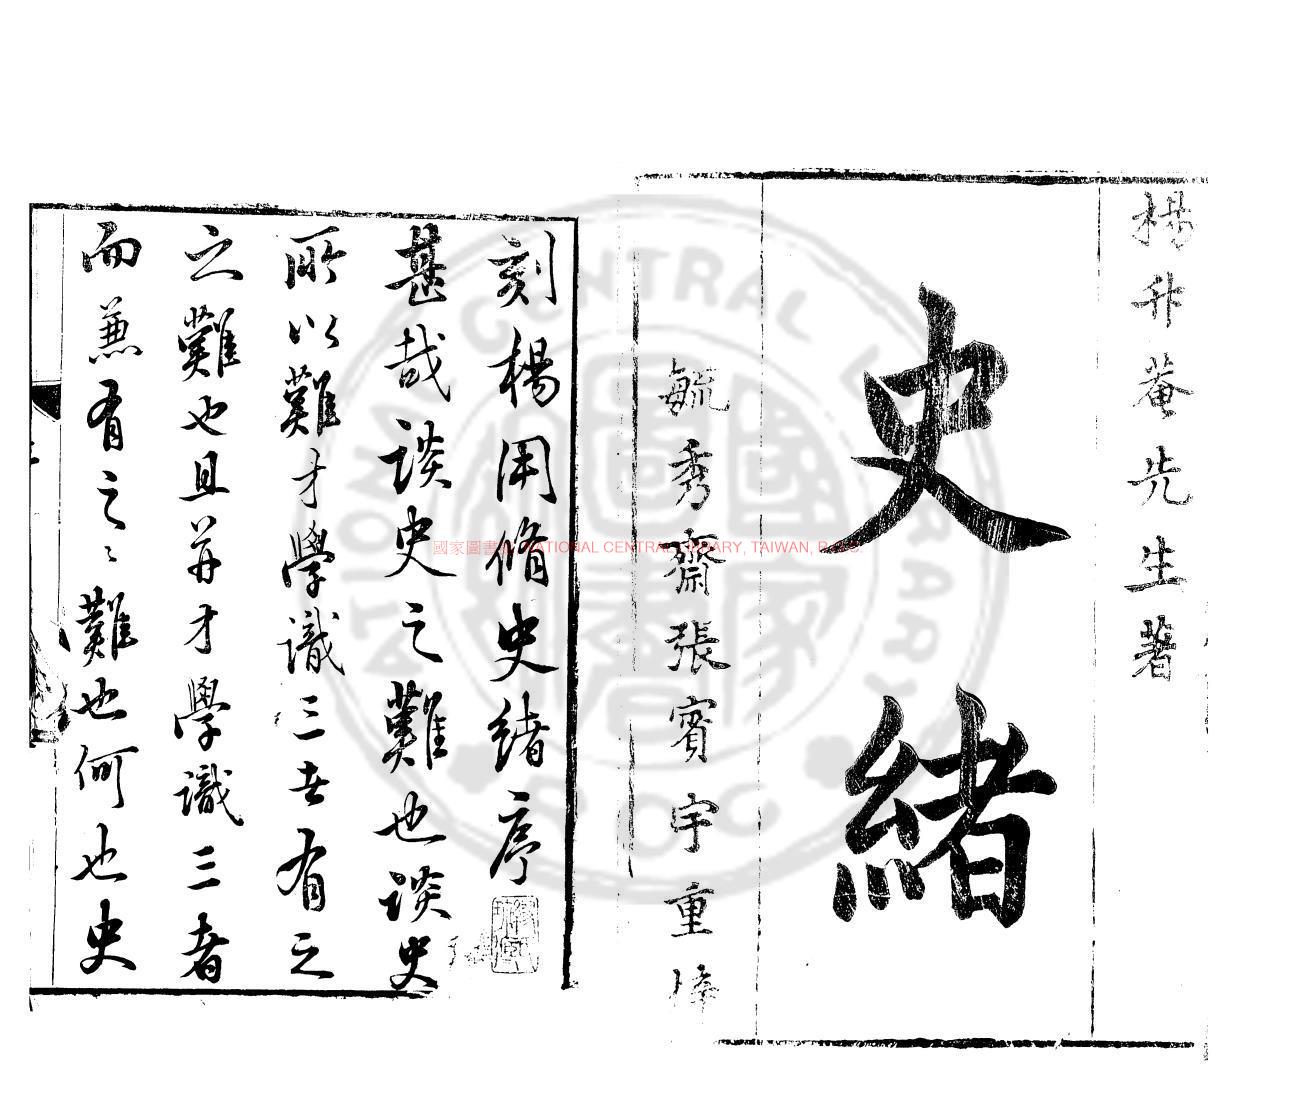 楊升菴先生著
史緒
毓秀齋張賓宇重梓
刻楊用脩史緒序
甚哉談史之難也談史
所以難才學識三者有之
之難也且并才學識三者
而兼有之之難也何也史
國家圖書館 NATIONAL CENTRAL LIBRARY, TAIWAN, R.O.C.
NATIONAL CENTRAL LIBRARY
ROC